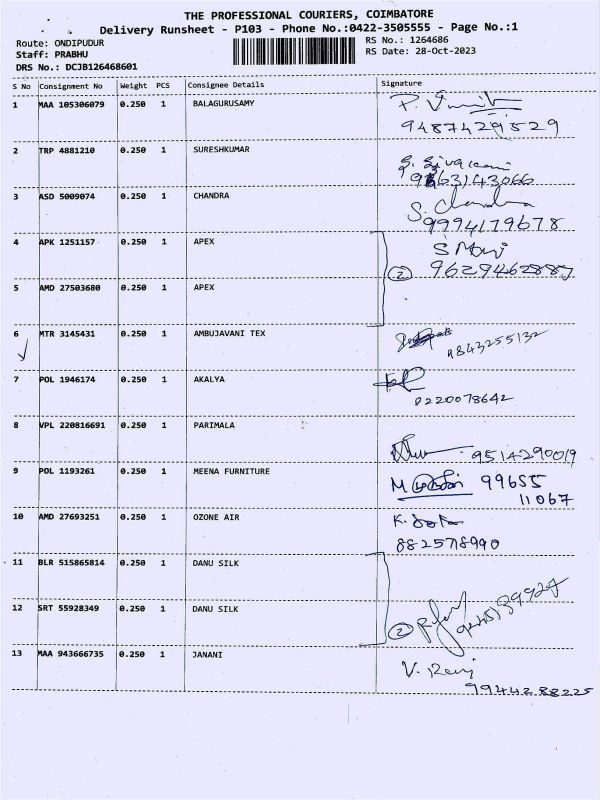 THE PROFESSIONAL COURIERS, COIMBATORE
Delivery Runsheet - P103 - Phone No.:0422-3505555 - Page No.:1
Route: ONDIPUDUR RS No.: 1264686
Staff: PRABHU RS Date: 28-Oct-2023
DRS No.: DCJB126468601
S No Consignment No Weight PCS Consignee Details Signature
1 MAA 105306079 0.250 1 BALAGURUSAMY
9487429529
2 TRP 4881210 0.250 1 SURESHKUMAR
3 ASD 5009074 0.250 1 CHANDRA S. Chandra
9994179678
4 APK 1251157 0.250 1 APEX S Mani
2 9629462887
5 AMD 27503680 0.250 1 APEX
6 MTR 3145431 0.250 1 AMBUJAVANI TEX
9843255132
7 POL 1946174 0.250 1 AKALYA
8220078642
8 VPL 220816691 0.250 1 PARIMALA
9514290019
9 POL 1193261 0.250 1 MEENA FURNITURE M 99655
11067
10 AMD 27693251 0.250 1 OZONE AIR
8825718990
11 BLR 515865814 0.250 1 DANU SILK
12 SRT 55928349 0.250 1 DANU SILK 2
13 MAA 943666735 0.250 1 JANANI V. Ravi
9944288225